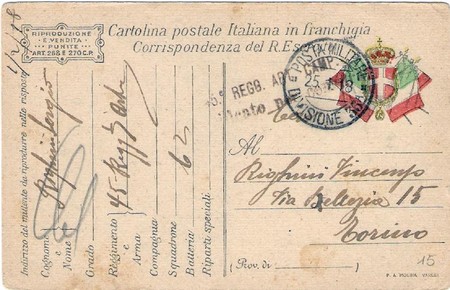 RIPRODUZIONE
E VENDITA
PUNITE
ART. 268 E 270 C.P.
Cartolina postale Italiana in franchigia
Corrispondenza del R. Es
POSTA MILITARE
25
18
DIVISIONE
45. REGG. AR
Indirizzo del mittente da riprodurre nelle risposte
1/2/18
Cognome e Nome Righini Sergio
Grado
Reggimento e Arma 45 Regg
Compagnia
Squadrone
Batteria 62
Riparti speciali
Al
Righini Vincenzo
Via Bellezia 15
Torino
(Prov. di
15